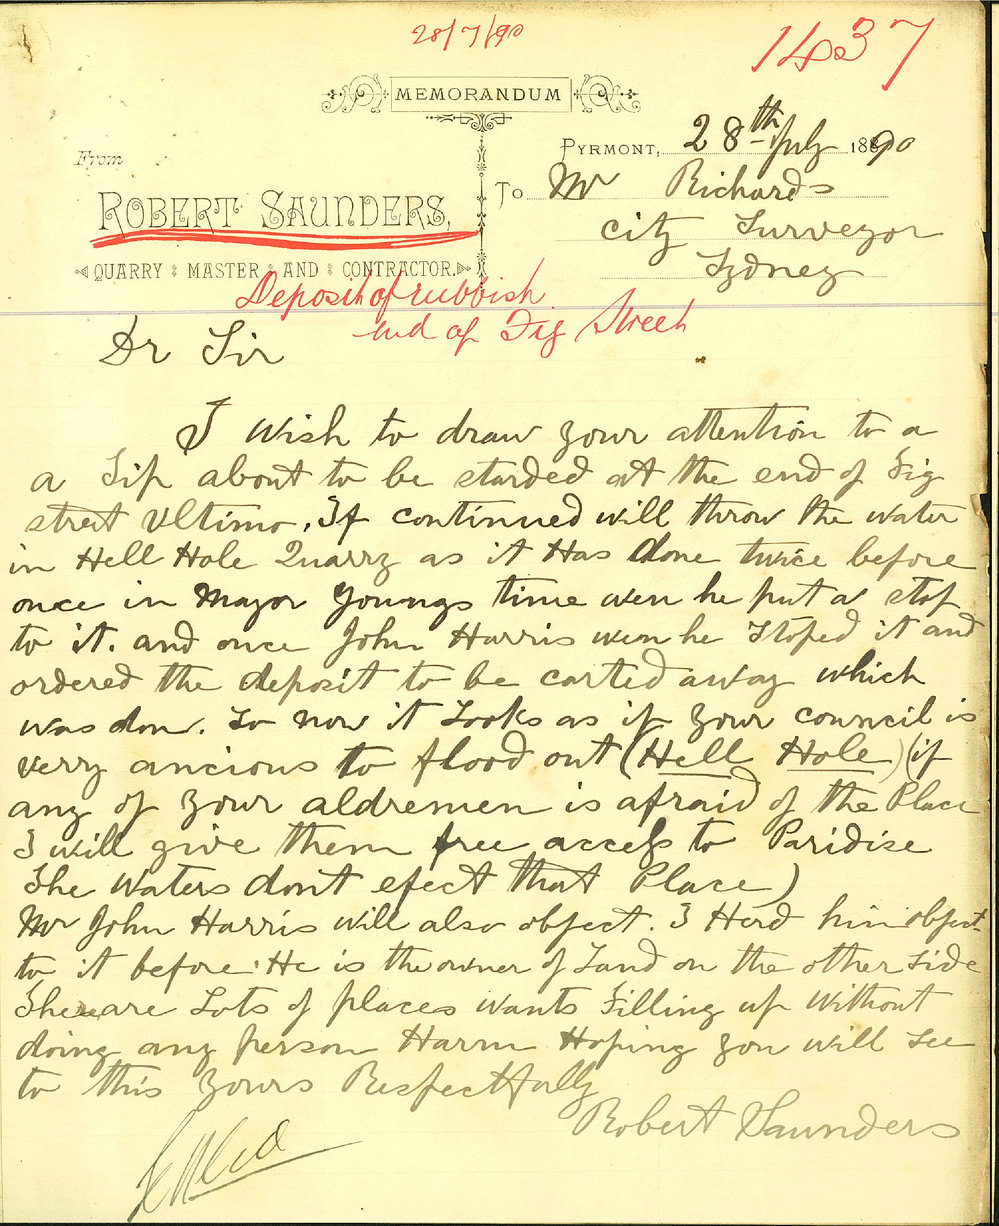 28/7/90
1437
MEMORANDUM
PYRMONT, 28th July 1890
From
ROBERT SAUNDERS,
To Mr Richards
City Surveyor
Sydney
QUARRY MASTER AND CONTRACTOR.
Deposit of rubbish
end of Fig Street
Dr Sir
I wish to draw your attention to a
a Tip about to be starded at the end of Fig
street Ultimo. If continued will throw the water
in Hell Hole Quarry as it Has done twice before
once in Mayor Youngs time wen he put a stop
to it. and once John Harris wen he Stoped it and
ordered the deposit to be carted away which
was don. So now it Looks as if your council is
verry ancious to flood out (Hell Hole) (if
any of your aldremen is afraid of the Place
I will give them free access to Paridise
The Waters dont efect that Place)
Mr John Harris will also object. I Herd him object
to it before. He is the owner of Land on the other side
There are Lots of places wants Filling up without
doing any person Harm Hoping you will See
to this Yours Respectfally
Robert Saunders